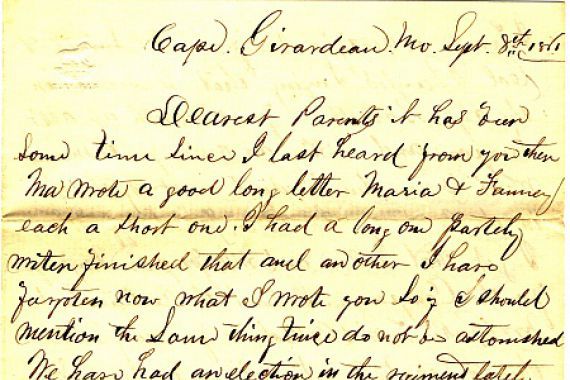 Cape. Girardeau. Mo. Sept. 8th 1861
Dearest Parents it has been
some time since I last heard from you then
Ma wrote a good long letter Maria & Fanney
each a short one. I had a long one partely
writen finished that and another I have
forgoten now what I wrote you so if I should
mention the same thing twice do not be astonished
We have had an election in the regiment lately